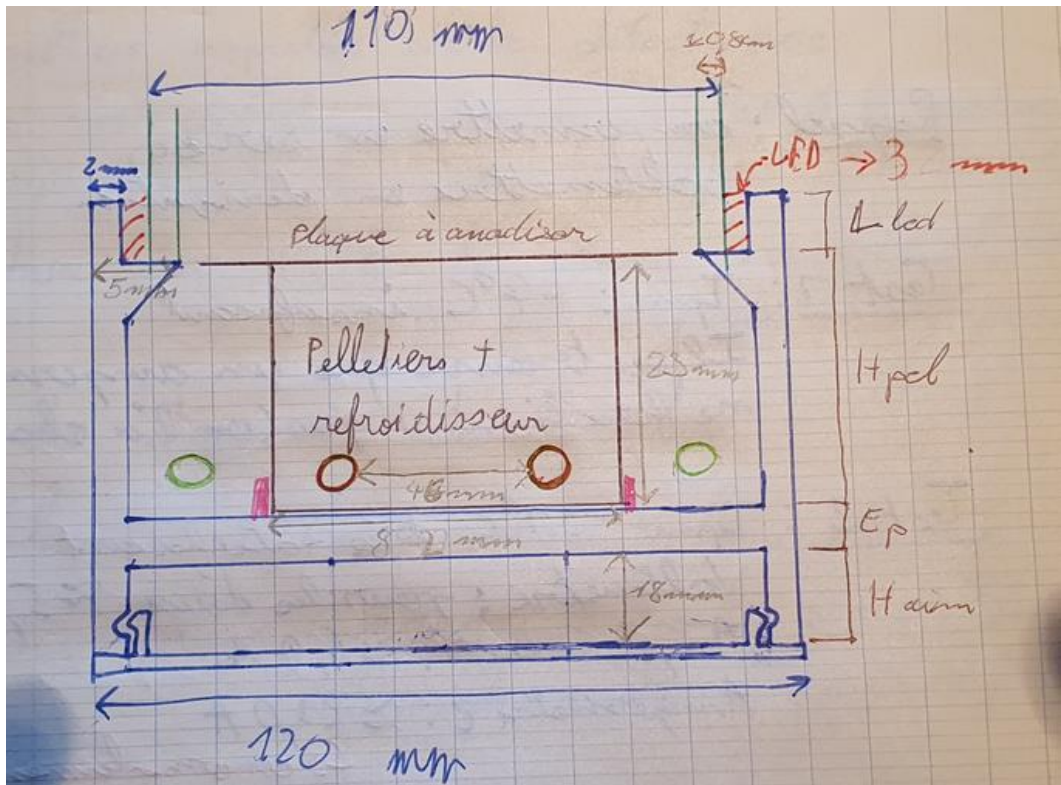 110 mm
0,8cm
2mm
LED → 3 mm
plaque à anodiser
L led
5mm
Pelletiers +
refroidisseur
23mm
H pel
46mm
mm
Ep
18mm
H aim
120 mm